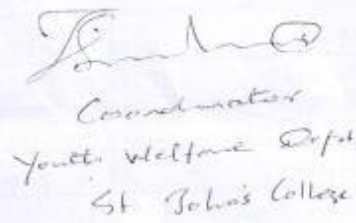 Coordinator
Youth Welfare Dept
St. John's College